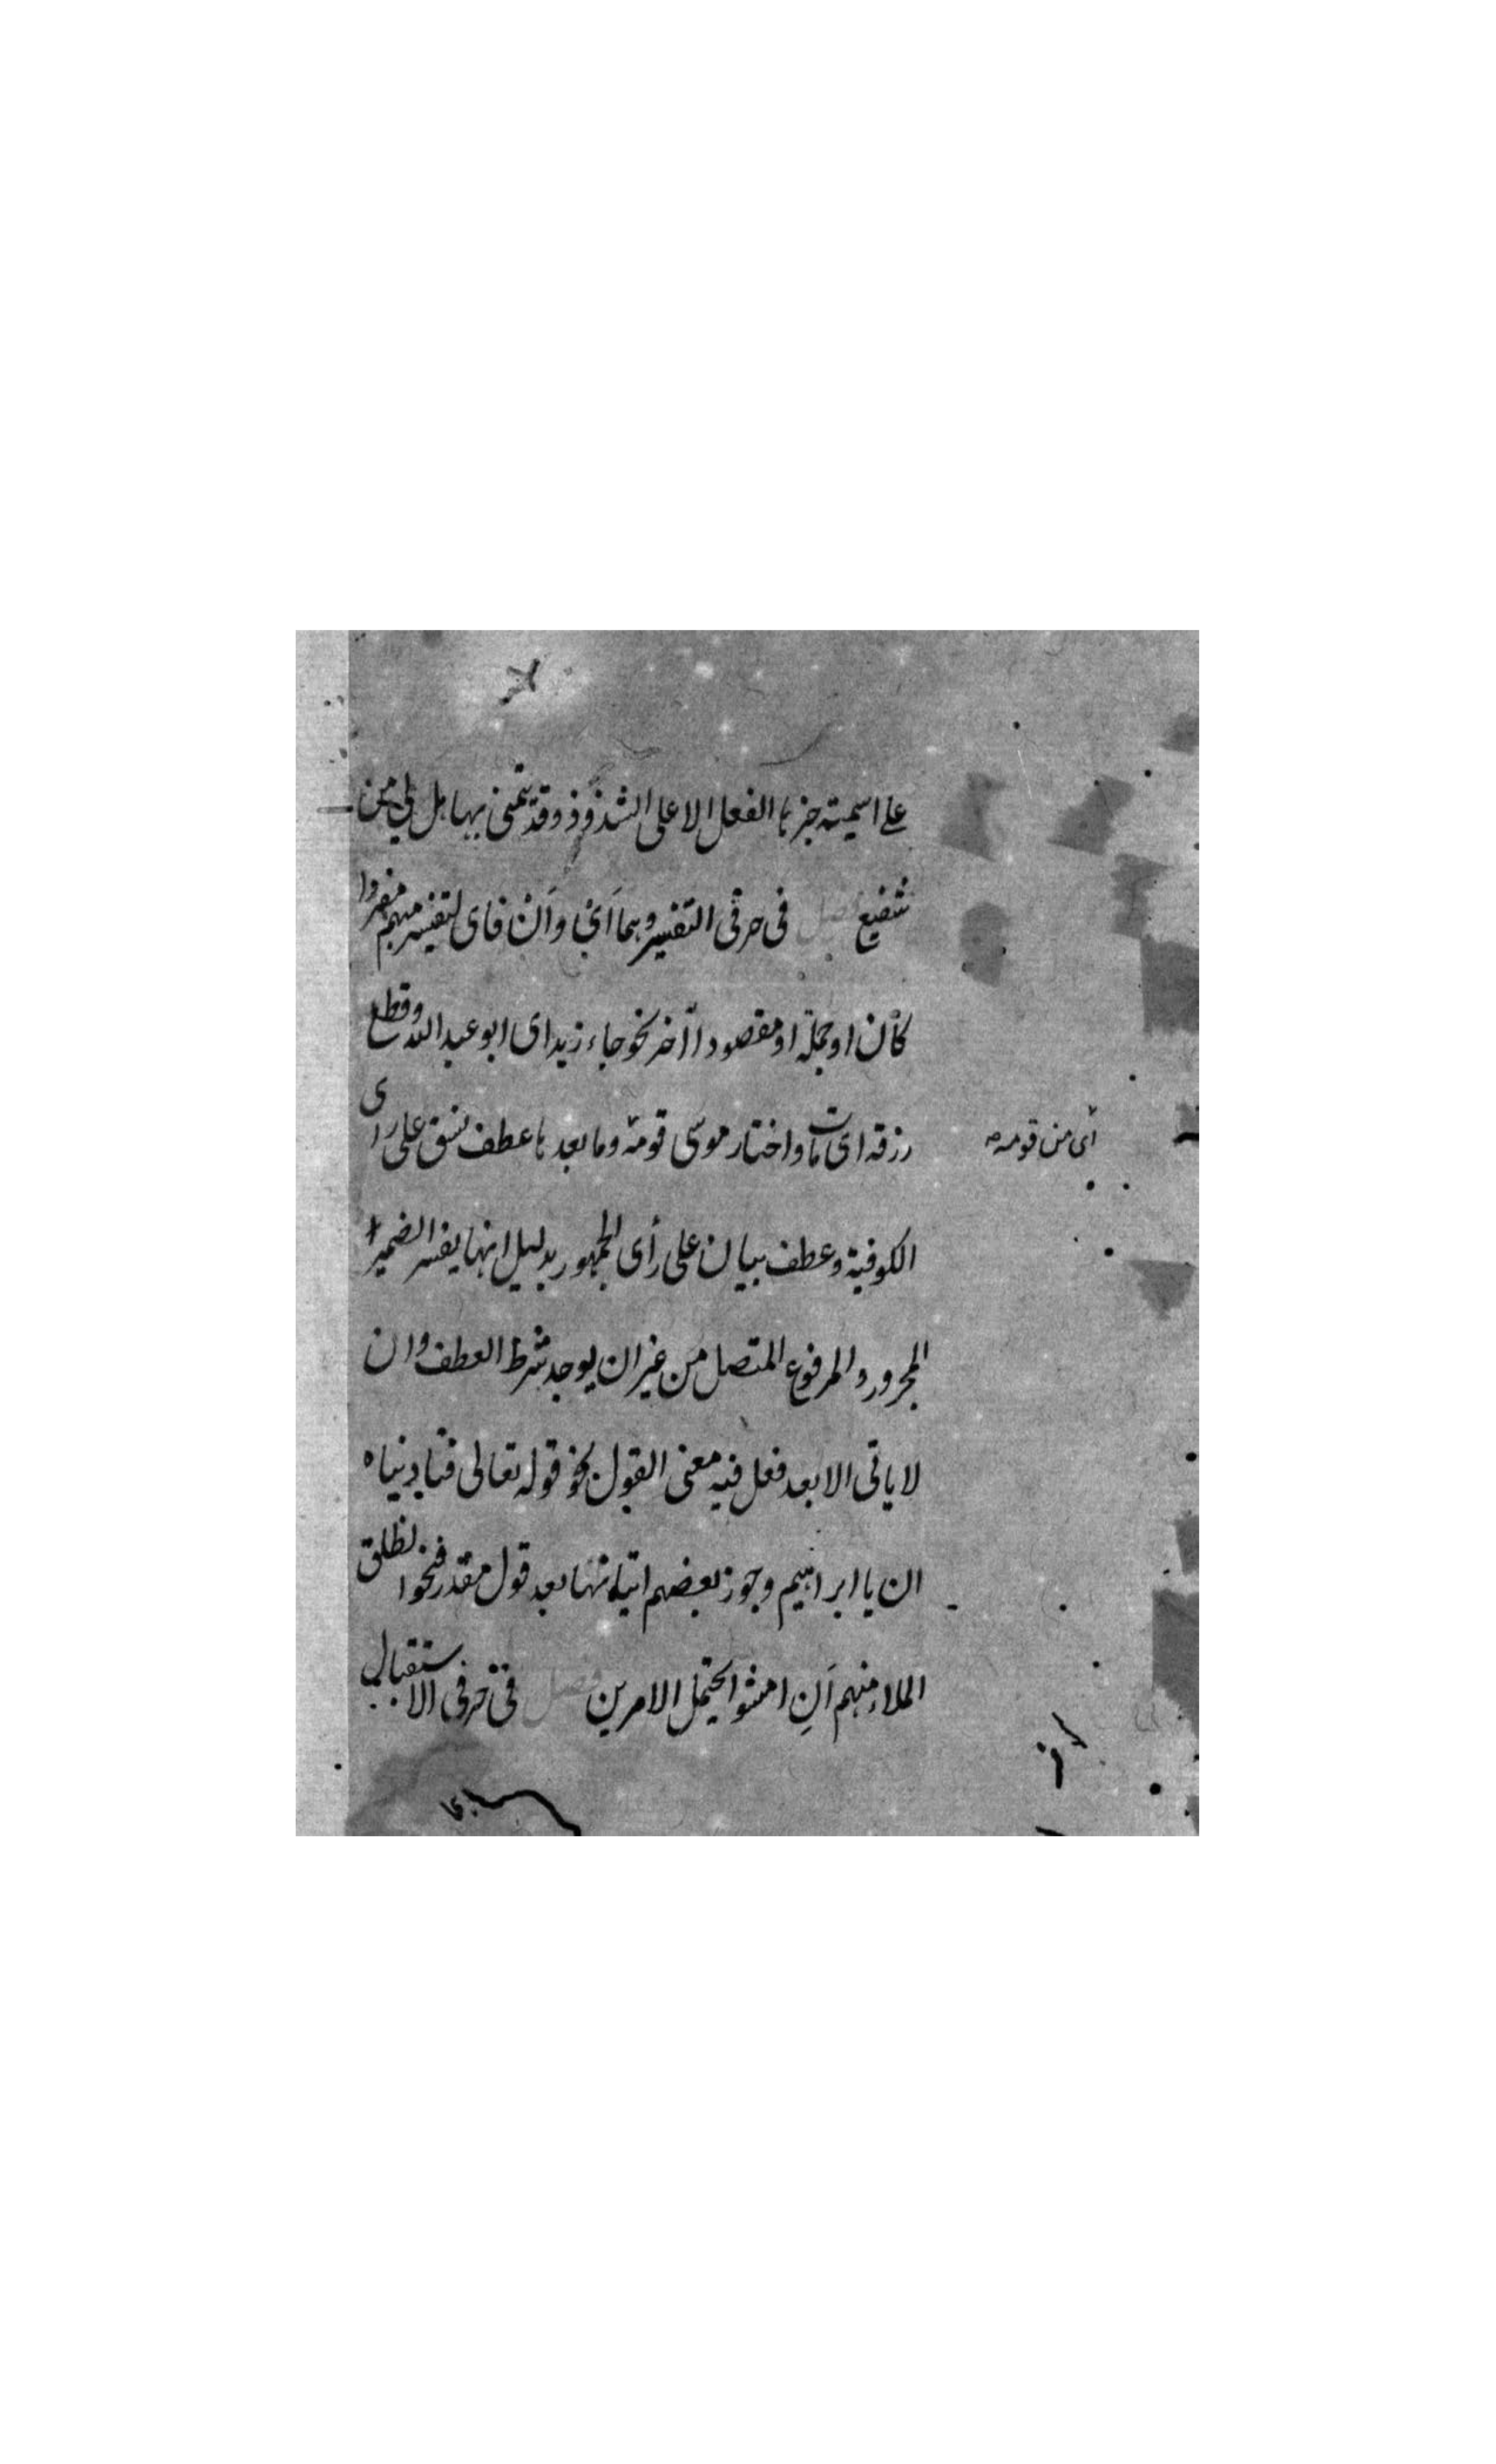 على اسمية جزءها الفعل الا على الشذوذ وقد تمنى بها هل لي من
شفيع فصل في حرفي التفسير وهما اَيْ واَنْ فاى لتفسير مبهم مفردا
كان او جملة او مقصودا آخر نحو جاء زيد اى ابو عبد الله وقطع
رزقه اى مات واختار موسى قومه وما بعدها عطف نسق على راى
الكوفية وعطف بيان على رأى الجمهور بدليل انها يفسر الضمير
المجرور والمرفوع المتصل من غير ان يوجد شرط العطف وان
لا ياتى الا بعد فعل فيه معنى القول نحو قوله تعالى فناديناه
ان يا ابراهيم وجوز بعضهم اتيانها بعد قول مقدر فنحو انطلق
الملاء منهم اَنِ امشوا يحتمل الامرين فصل في حرفى الاستقبال
أى من قومه